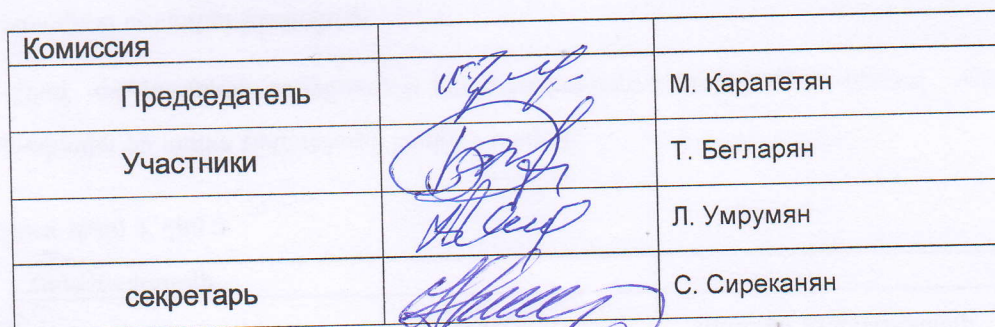 Комиссия
Председатель М. Карапетян
Участники Т. Бегларян
Л. Умрумян
секретарь С. Сиреканян